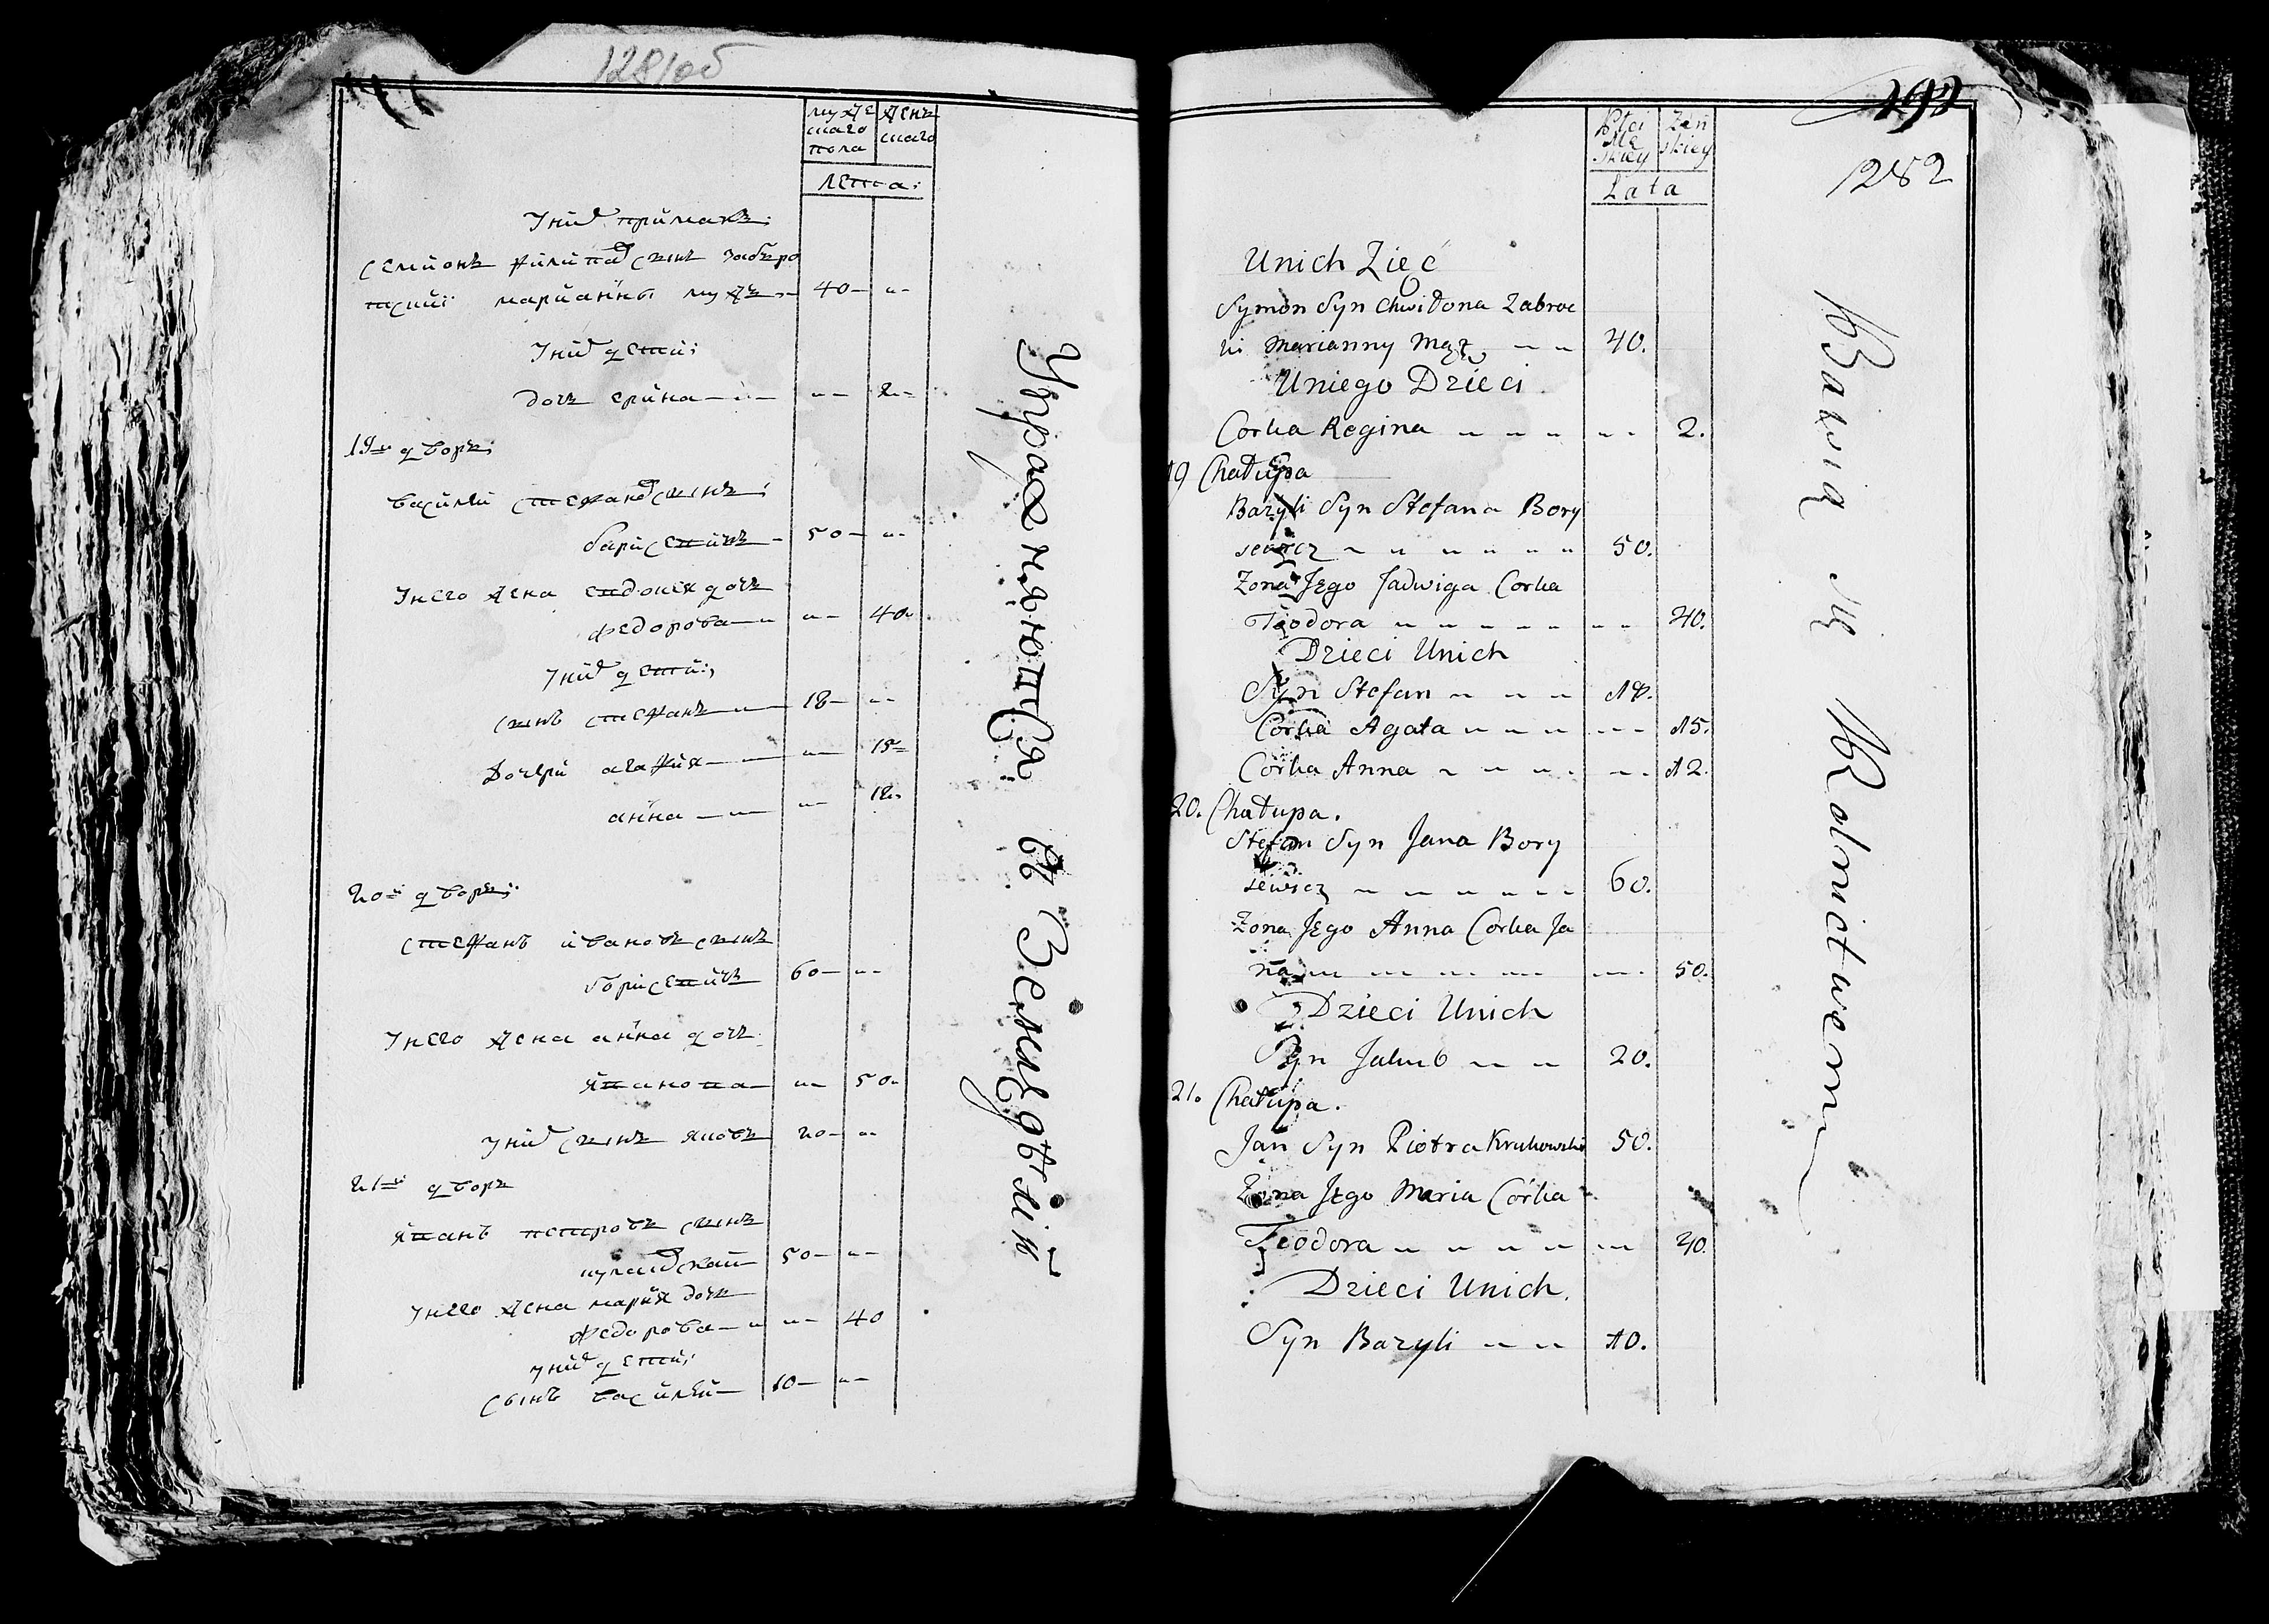 128/об
мужескаго пола
женскаго
лета:
У них примакъ:
Семионъ филипов сынъ забро
тский марианны мужъ 40
У них дети:
дочь ерина 2
19й дворъ:
василий стефанов сынъ
барисевичъ 50
У него жена евдокея дочъ
федорова 40
У них дети:
сынъ стефанъ 18
дочери агафия 15
анна 12
20й дворъ:
стефанъ ивановъ сынъ
борисевичъ 60
У него жена анна дочъ
иванова 50
У них сынъ яковъ 20
21й дворъ
иванъ петровъ сынъ
50
У него жена мария дочъ
федорова 40
у них дети:
сынъ василий 10
Упражняются въ Земледѣлiи
1282
Płci Męskiey
Żeńskiey
Lata
Unich Zięć
Symon Syn Chwidona Zabroc
ki Marianny Mąż 40.
Uniego Dzieci
Corka Regina 2.
19 Chałupa
Bazyli Syn Stefana Bory
sewicz 50.
Zona Jego Jadwiga Corka
Teodora 40.
Dzieci Unich
Syn Stefan 18.
Corka Agata 15.
Corka Anna 12.
20. Chałupa.
Stefan Syn Jana Bory
sewicz 60.
Zona Jego Anna Corka Ja
na 50.
Dzieci Unich
Syn Jakub 20.
21. Chałupa.
Jan Syn Piotra Krukowski 50.
Zona Jego Maria Córka
Teodora 40.
Dzieci Unich.
Syn Bazyli 10.
Bawią się Rolnictwem